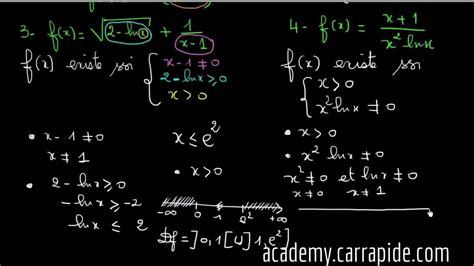 3- f(x) = √(2-lnx) + 1/(x-1)
f(x) existe ssi { x-1 ≠ 0
2-lnx ≥ 0
x > 0
• x-1 ≠ 0
x ≠ 1
• 2-lnx ≥ 0
-lnx ≥ -2
lnx ≤ 2
x ≤ e²
• x > 0
-∞ 0 1 e² +∞
Df = ]0,1[ U ]1,e²]
4- f(x) = (x+1)/(x² lnx)
f(x) existe ssi
{ x > 0
x² lnx ≠ 0
• x > 0
• x² lnx ≠ 0
x² ≠ 0 et lnx ≠ 0
x ≠ 0 x ≠ 1
academy.carrapide.com